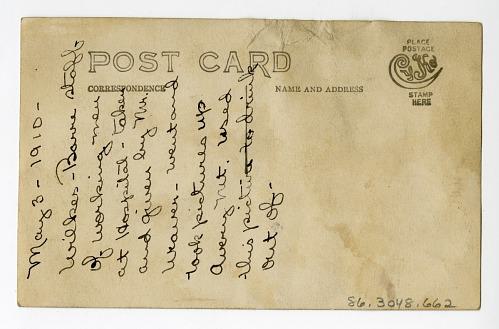 POST CARD
CORRESPONDENCE
NAME AND ADDRESS
PLACE
POSTAGE
CYKO
STAMP
HERE
May 3 - 1910 -
Wilkes-Barre staff
of working men
at Hospital - taken
and given by Mr.
Weaver - went and
took pictures up
Avery Mt. Used
this picture to drink
out of -
86.3048.662